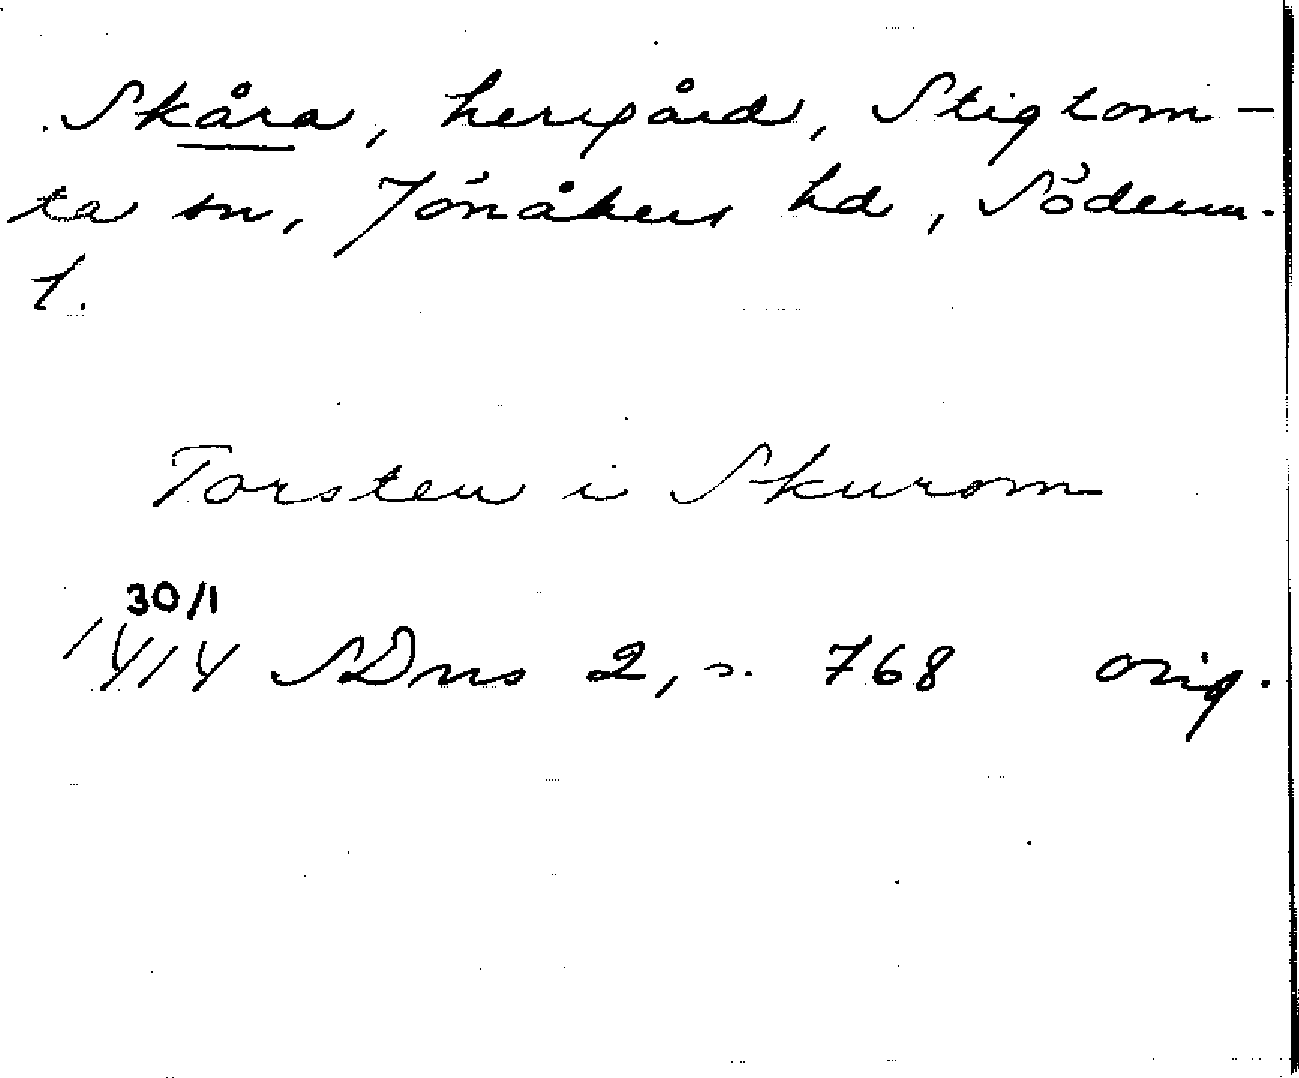 Skåra, herrgård, Stigtom-
ta sn, Jönåkers hd, Söderm.
1.
Torsten i Skurom
30/1
1414 SDns 2, s. 768 orig.